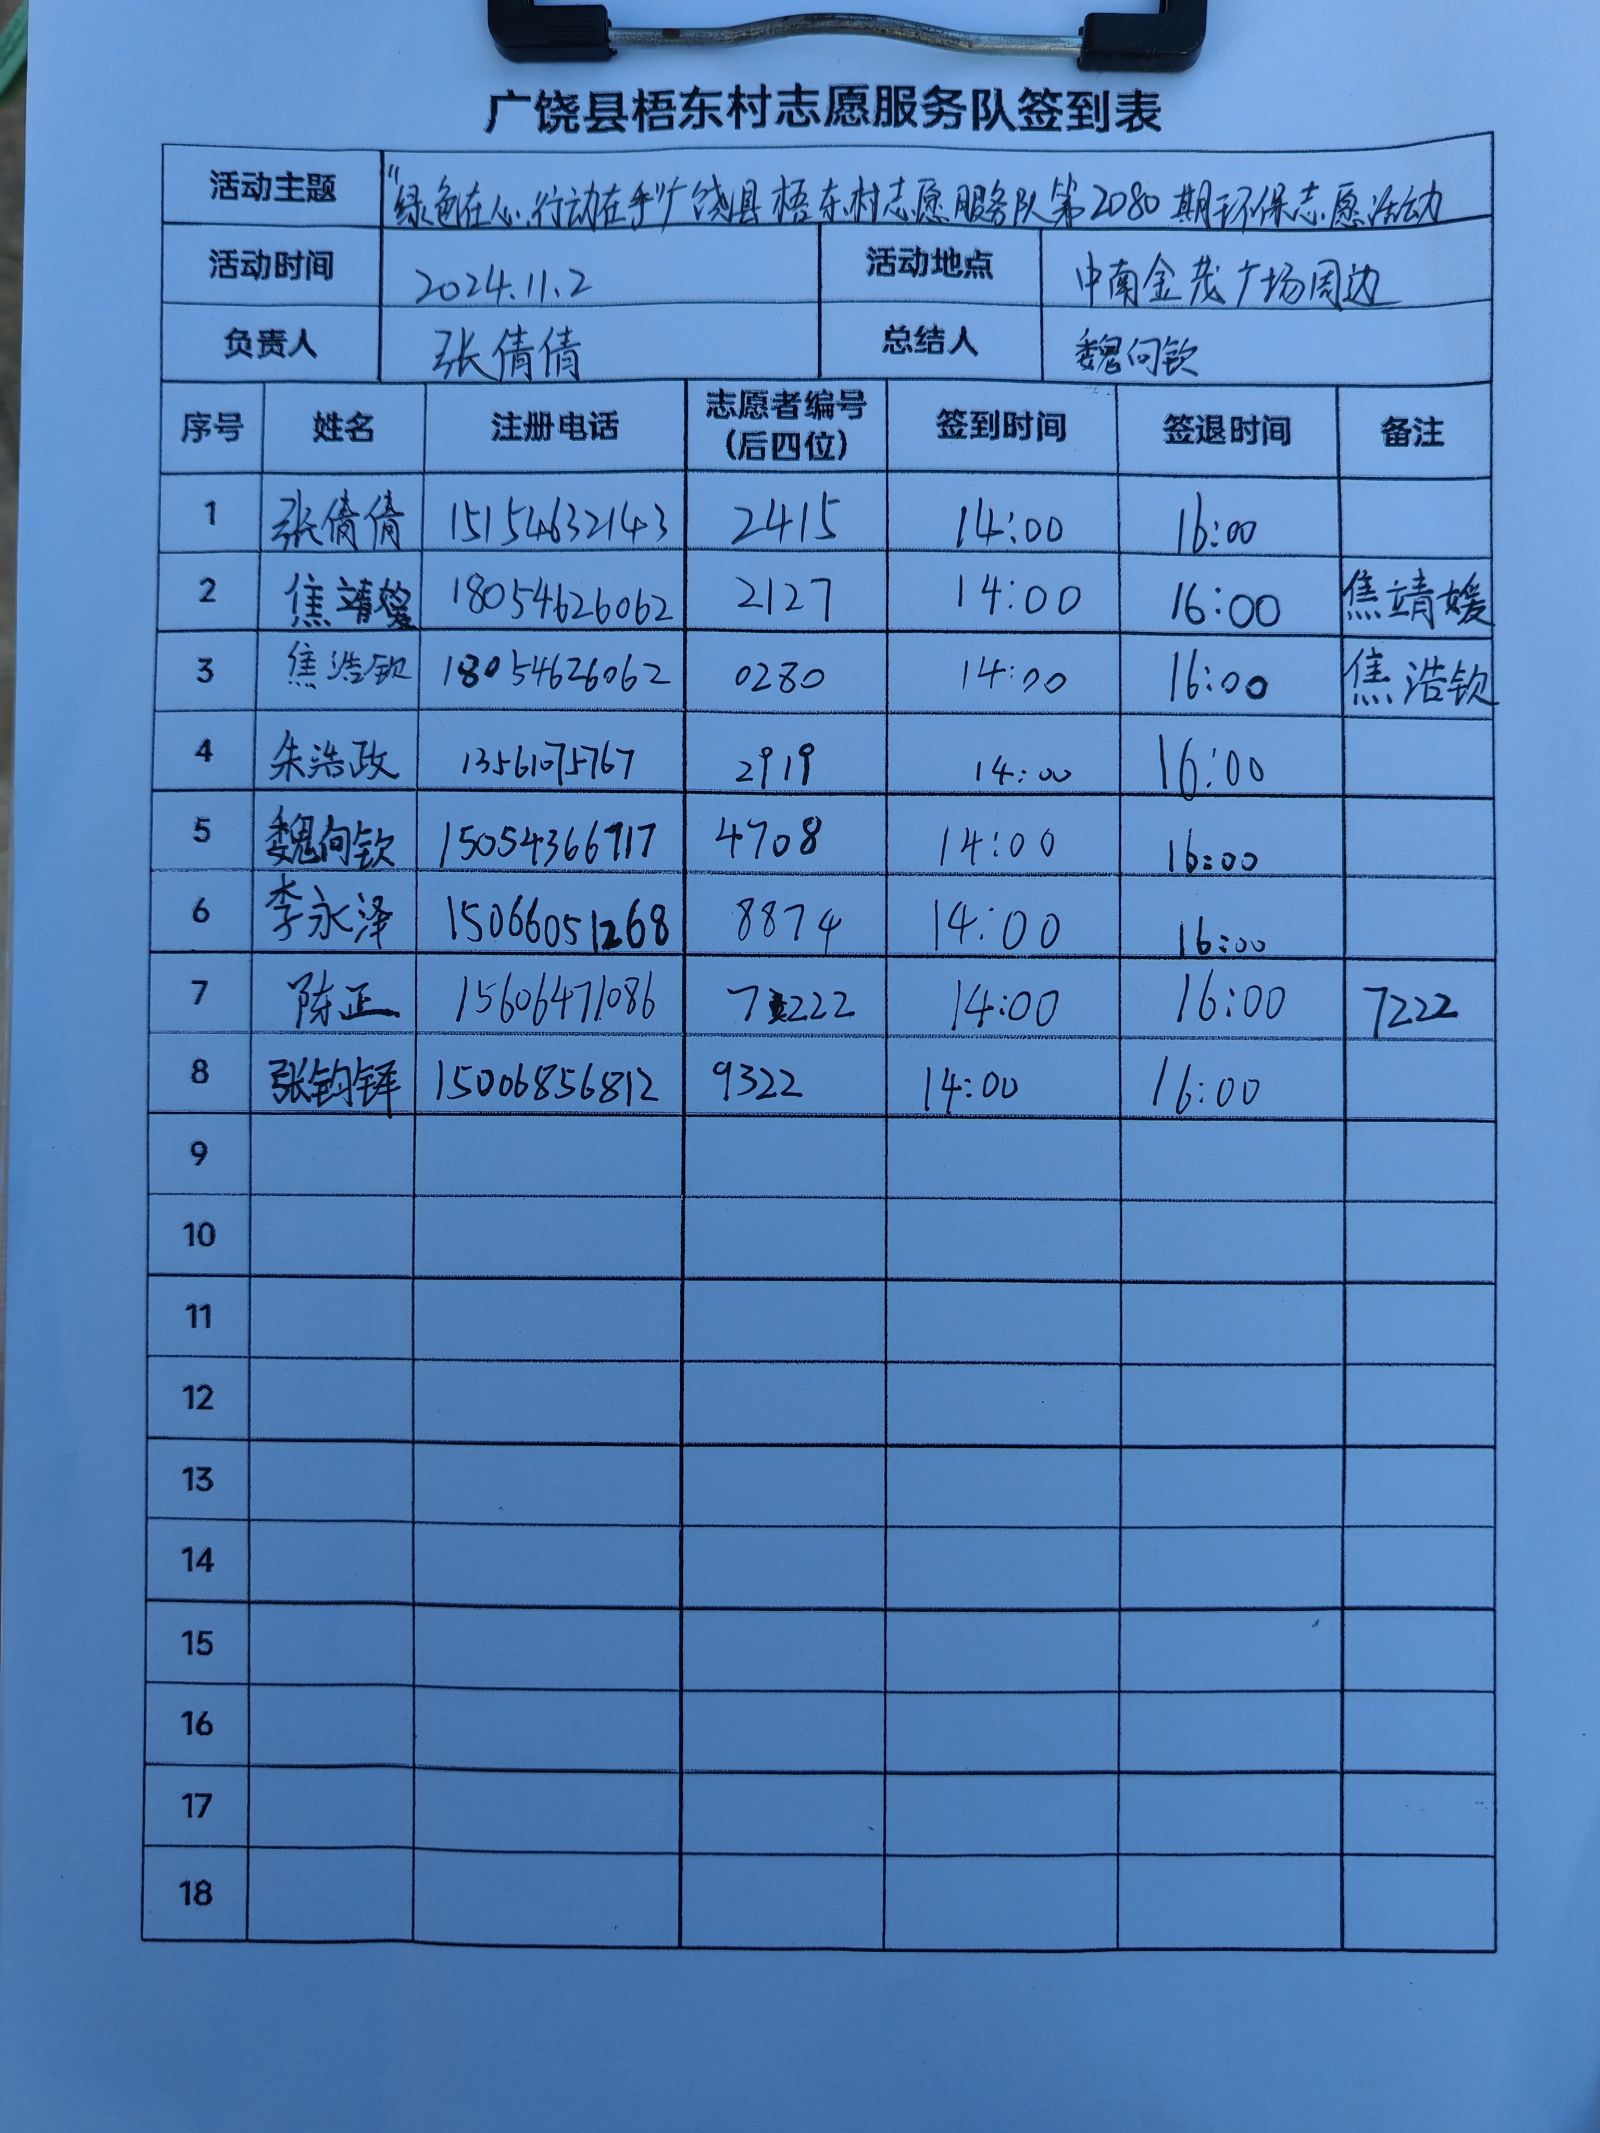 广饶县梧东村志愿服务队签到表
活动主题 "绿色在心,行动在手"广饶县梧东村志愿服务队第2080期环保志愿活动
活动时间 2024.11.2 活动地点 中南金茂广场周边
负责人 张倩倩 总结人 魏向钦
序号 姓名 注册电话 志愿者编号 签到时间 签退时间 备注
(后四位)
1 张倩倩 15154632143 2415 14:00 16:00
2 焦靖媛 18054626062 2127 14:00 16:00 焦靖媛
3 焦浩钦 18054626062 0280 14:00 16:00 焦浩钦
4 朱浩政 13561075767 2919 14:00 16:00
5 魏向钦 15054366917 4708 14:00 16:00
6 李永泽 15066051268 8874 14:00 16:00
7 陈正 15606471086 7222 14:00 16:00 7222
8 张钧铎 15006856812 9322 14:00 16:00
9
10
11
12
13
14
15
16
17
18